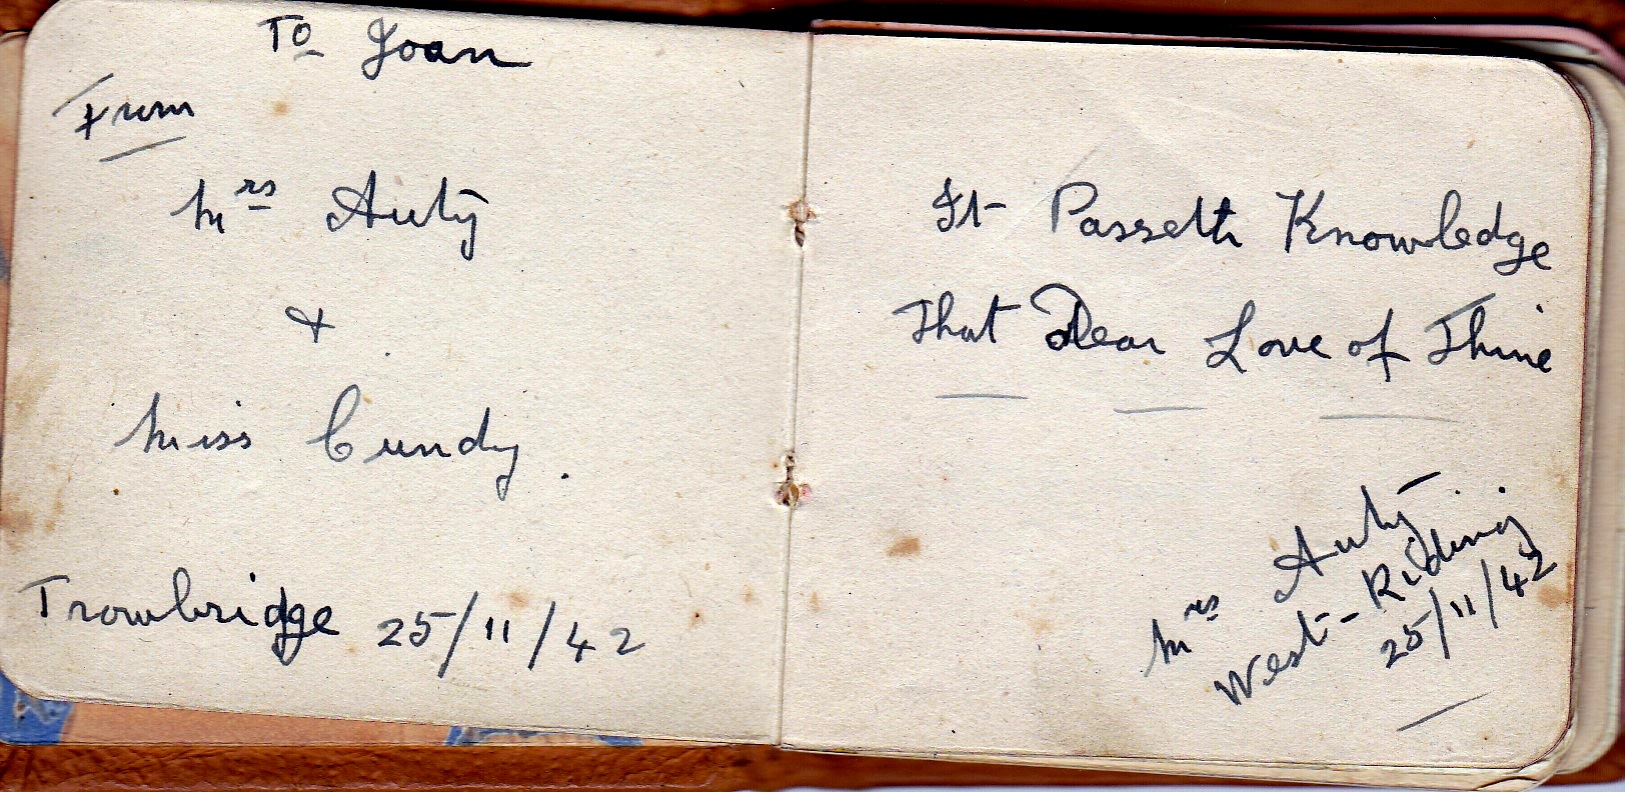 To Joan
From
Mrs Auty
&
Miss Cundy.
Trowbridge 25/11/42
It Passeth Knowledge
That Dear Love of Thine
Mrs Auty
West-Riding
25/11/42